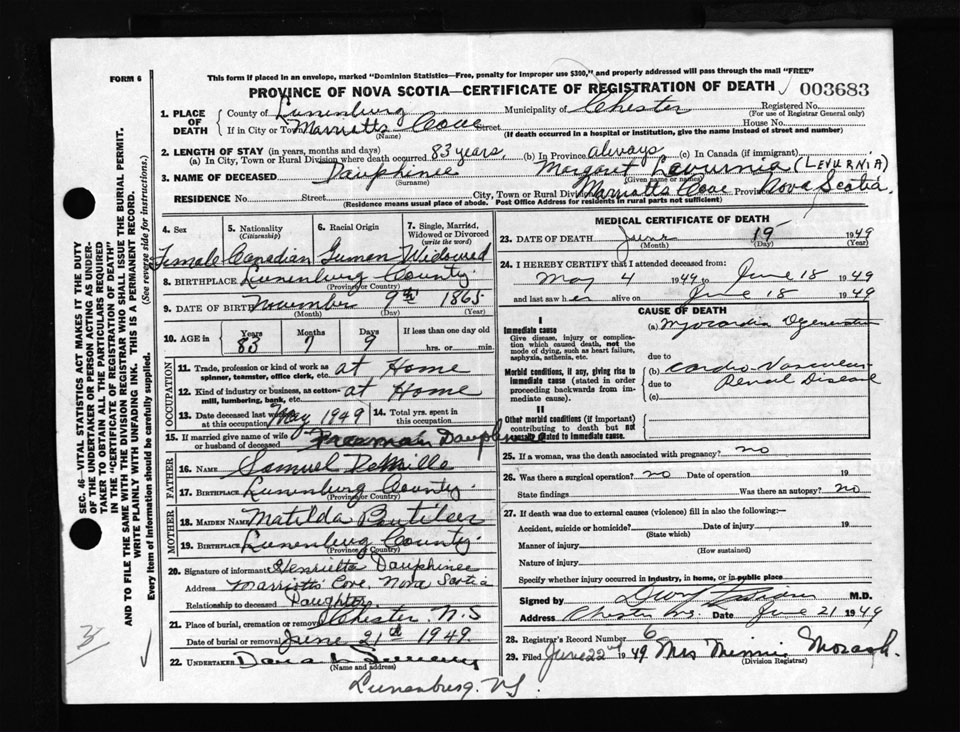 FORM 6
This form if placed in an envelope, marked "Dominion Statistics—Free, penalty for improper use $300," and properly addressed will pass through the mail "FREE"
PROVINCE OF NOVA SCOTIA—CERTIFICATE OF REGISTRATION OF DEATH 003683
1. PLACE OF DEATH
County of Lunenburg Municipality of Chester Registered No.
(For use of Registrar General only)
If in City or Town Marriotts Cove Street House No.
(Name) (If death occurred in a hospital or institution, give the name instead of street and number)
2. LENGTH OF STAY (in years, months and days)
(a) In City, Town or Rural Division where death occurred 83 years, (b) In Province always (c) In Canada (if immigrant)
3. NAME OF DECEASED Dauphinee Margret Lavurnia (LEVURNIA)
(Surname) (Given name or names)
RESIDENCE No. Street City, Town or Rural Division Marriotts Cove Province Nova Scotia
(Residence means usual place of abode. Post Office Address for residents in rural parts not sufficient)
4. Sex 5. Nationality (Citizenship) 6. Racial Origin 7. Single, Married, Widowed or Divorced (write the word)
Female Canadian German Widowed
8. BIRTHPLACE Lunenburg County
(Province or Country)
9. DATE OF BIRTH November 9th 1865
(Month) (Day) (Year)
10. AGE in Years Months Days If less than one day old
83 7 9 hrs. or min.
OCCUPATION
11. Trade, profession or kind of work as spinner, teamster, office clerk, etc. at Home
12. Kind of industry or business, as cotton-mill, lumbering, bank, etc. at Home
13. Date deceased last worked at this occupation May 1949 14. Total yrs. spent in this occupation
15. If married give name of wife or husband of deceased Freeman Dauphinee
FATHER
16. NAME Samuel DeMille
17. BIRTHPLACE Lunenburg County
(Province or Country)
MOTHER
18. MAIDEN NAME Matilda Boutilier
19. BIRTHPLACE Lunenburg County
(Province or Country)
20. Signature of informant Henrietta Dauphinee
Address Marriotts Cove, Nova Scotia
Relationship to deceased Daughter
21. Place of burial, cremation or removal Chester, N.S
Date of burial or removal June 21st 1949
22. UNDERTAKER
(Name and address)
Lunenburg, NS.
MEDICAL CERTIFICATE OF DEATH
23. DATE OF DEATH June 19 1949
(Month) (Day) (Year)
24. I HEREBY CERTIFY that I attended deceased from:
May 4 1949 to June 18 1949
and last saw her alive on June 18 1949
CAUSE OF DEATH
I
Immediate cause
Give disease, injury or complication which caused death, not the mode of dying, such as heart failure, asphyxia, asthenia, etc.
(a) Myocardia Degeneration
due to
Morbid conditions, if any, giving rise to immediate cause (stated in order proceeding backwards from immediate cause).
(b) Cardio-Vascular
due to Renal Disease
(c)
II
Other morbid conditions (if important) contributing to death but not causally related to immediate cause.
25. If a woman, was the death associated with pregnancy? no
26. Was there a surgical operation? no Date of operation 19
State findings Was there an autopsy? no
27. If death was due to external causes (violence) fill in also the following:—
Accident, suicide or homicide? Date of injury 19
(State which)
Manner of injury
(How sustained)
Nature of injury
Specify whether injury occurred in industry, in home, or in public place
Signed by M.D.
Address Chester N.S. Date June 21 1949
28. Registrar's Record Number 6
29. Filed June 22nd 1949 Mrs Minnie Morash.
(Division Registrar)
SEC. 46—VITAL STATISTICS ACT MAKES IT THE DUTY
OF THE UNDERTAKER OR PERSON ACTING AS UNDER-
TAKER TO OBTAIN ALL THE PARTICULARS REQUIRED
IN THE "CERTIFICATE OF REGISTRATION OF DEATH"
AND TO FILE THE SAME WITH THE DIVISION REGISTRAR WHO SHALL ISSUE THE BURIAL PERMIT.
WRITE PLAINLY WITH UNFADING INK. THIS IS A PERMANENT RECORD.
Every item of information should be carefully supplied. (See reverse side for instructions.)
3